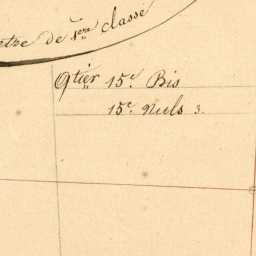 etre de 1ere classe
Qtier 15e Bis
15e Nuls 3.